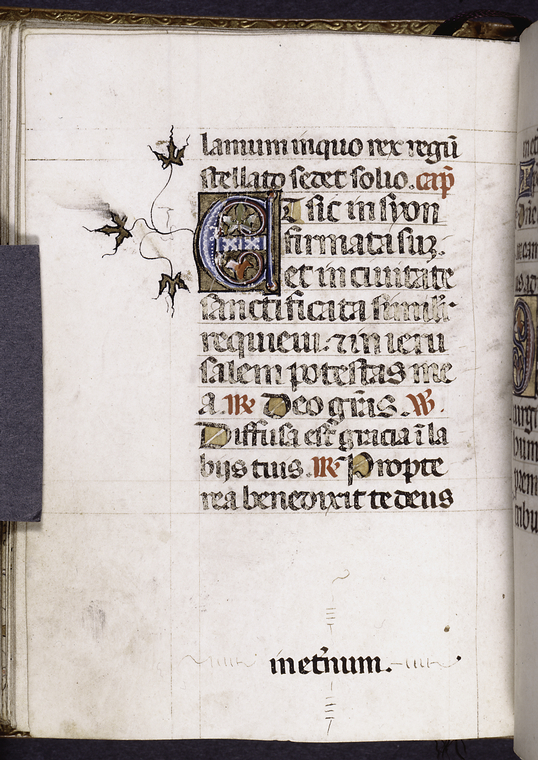 lamum in quo rex regū
stellato sedet solio. cap̄
Et sic in syon
firmata suʒ.
et in ciuitate
sanctificata simili
requieui. ⁊ in ieru
salem potestas me
a. ℞ Deo grās. ℣.
Diffusa est gracia ī la
bijs tuis. ℞ Propte
rea benedixit te deus
in etnūm.